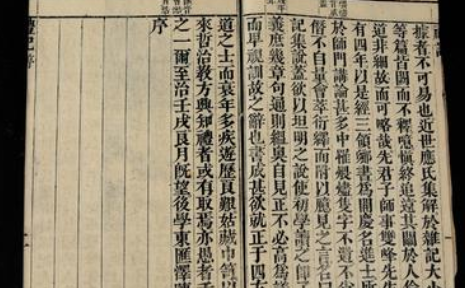 據者不可易也近世應氏集解於雜記大小
等篇皆闕而不釋噫慎終追遠其關於人倫
道非細故而可略哉先君子師事雙峰先生
有四年以是經三領鄉書爲開慶名進士所
於師門講論甚多中罹煨燼隻字不遺不
僭不自量會萃衍繹而附以臆見之言名曰
記集說蓋欲以坦明之說使初學讀之即
義庶幾章句通則緼奧自見正不必高爲議
而卑視訓故之辭也書成甚欲就正于四方
道之士而衰年多疾遊歷良艱姑藏巾笥以
來哲治教方興知禮者或有取焉亦愚者千
之一爾至治壬戌良月既望後學東匯澤陳
序
禮記序